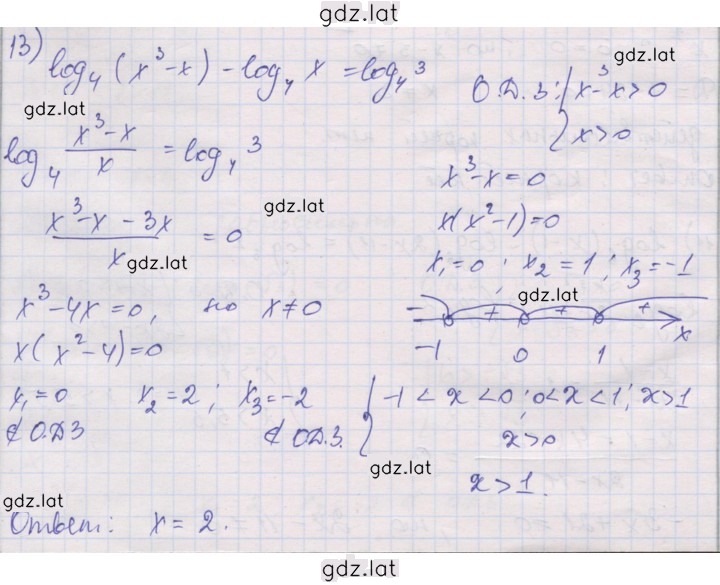 gdz.lat
13) log₄(x³-x) - log₄x = log₄3
gdz.lat
О.Д.З: { x³-x>0
x>0
gdz.lat
log₄ (x³-x)/x = log₄3
x³-x=0
(x³-x-3x)/x = 0
gdz.lat
x(x²-1)=0
gdz.lat
x₁=0; x₂=1; x₃=-1
gdz.lat
x³-4x=0, но x≠0
- + + + x
-1 0 1
x(x²-4)=0
x₁=0 x₂=2; x₃=-2
∉ О.ДЗ ∉ О.Д.З.
{ -1<x<0; 0<x<1; x>1
x>0
gdz.lat
x>1.
gdz.lat
Ответ: x=2.
gdz.lat